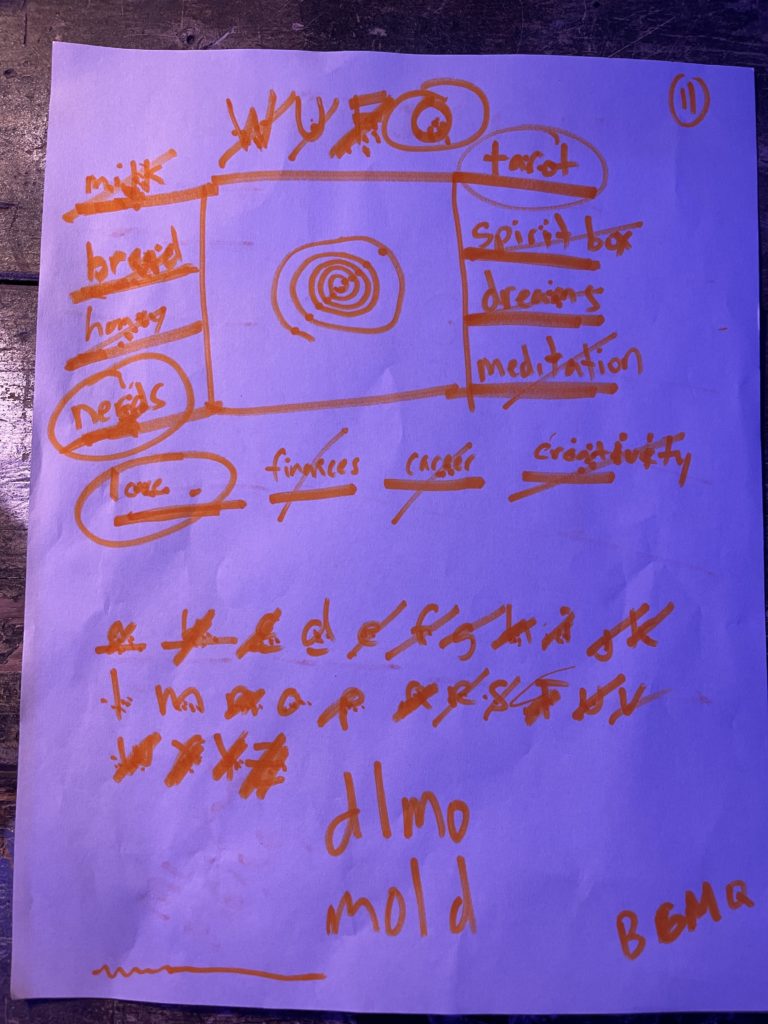 11
W U F Q
milk
tarot
spirit box
bread
dreams
honey
meditation
nerds
love
finances
career
creativity
a b c d e f g h i j k
l m n o p q r s t u v
w x y z
dlmo
mold
B G M Q